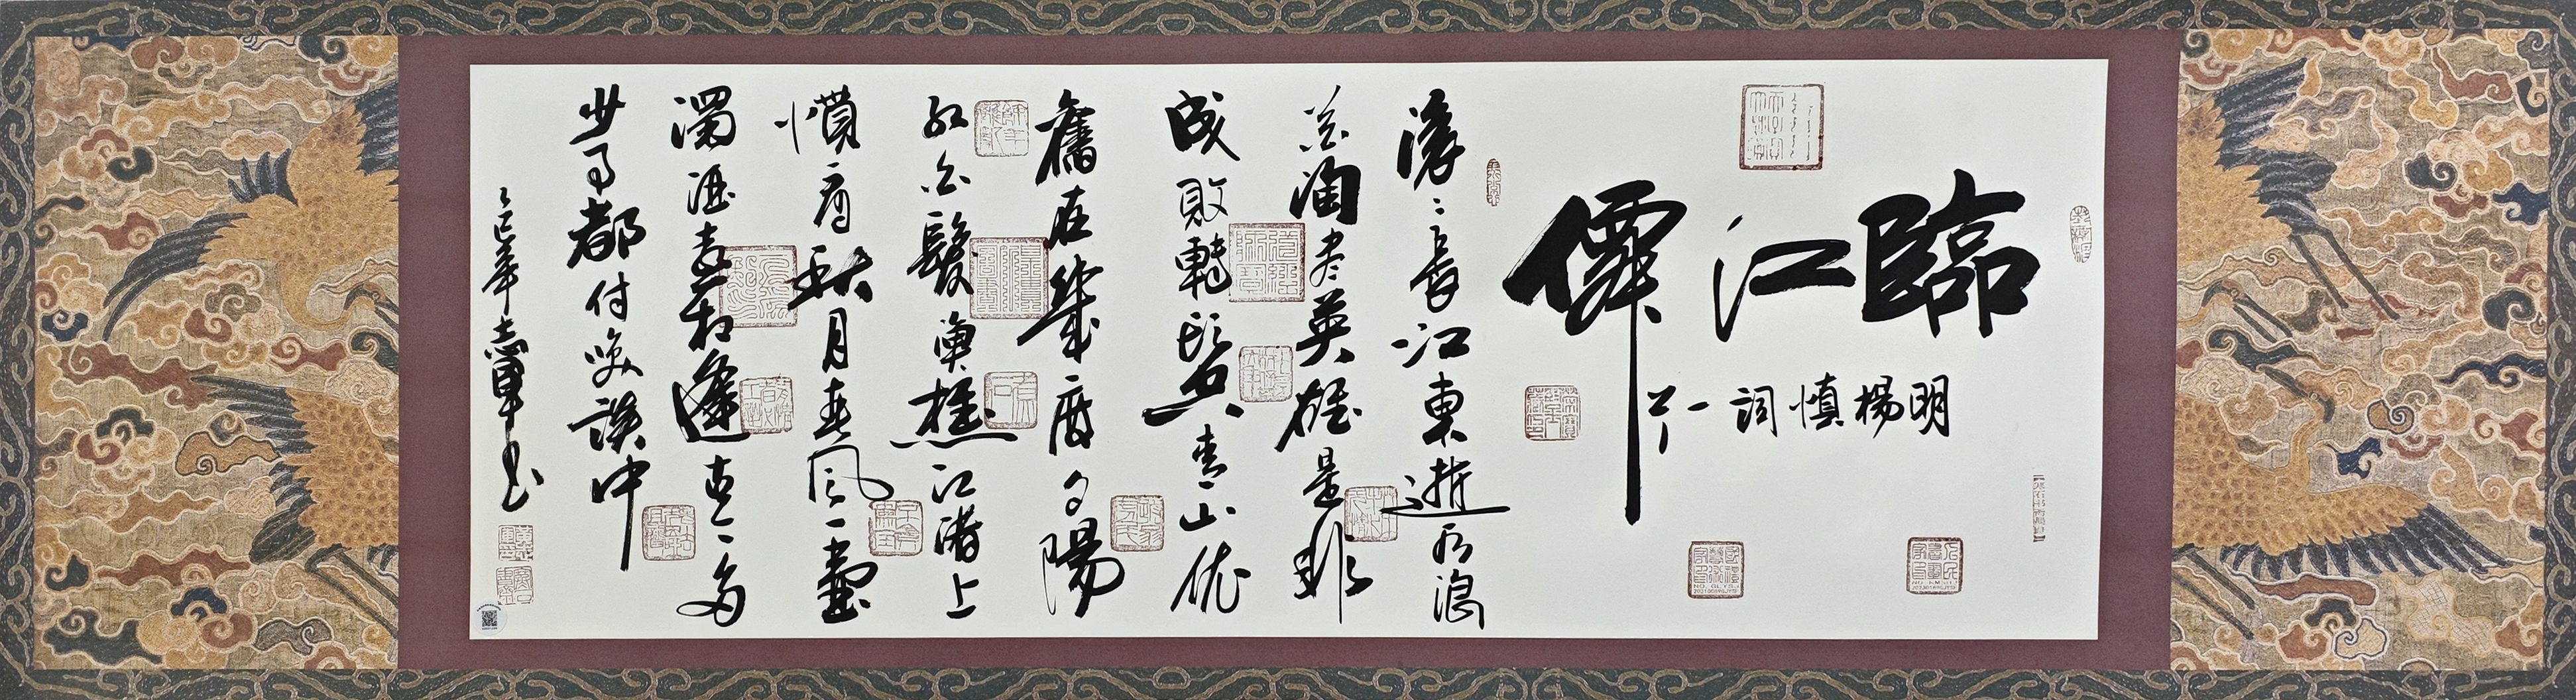 臨江僊
明楊慎詞一
滾〻長江東逝水浪
花淘盡英雄是非
成敗轉頭空青山依
舊在幾度夕陽
紅白髮漁樵江渚上
慣看秋月春風一壺
濁酒喜相逢古今多
少事都付咲談中
乙巳年志軍书